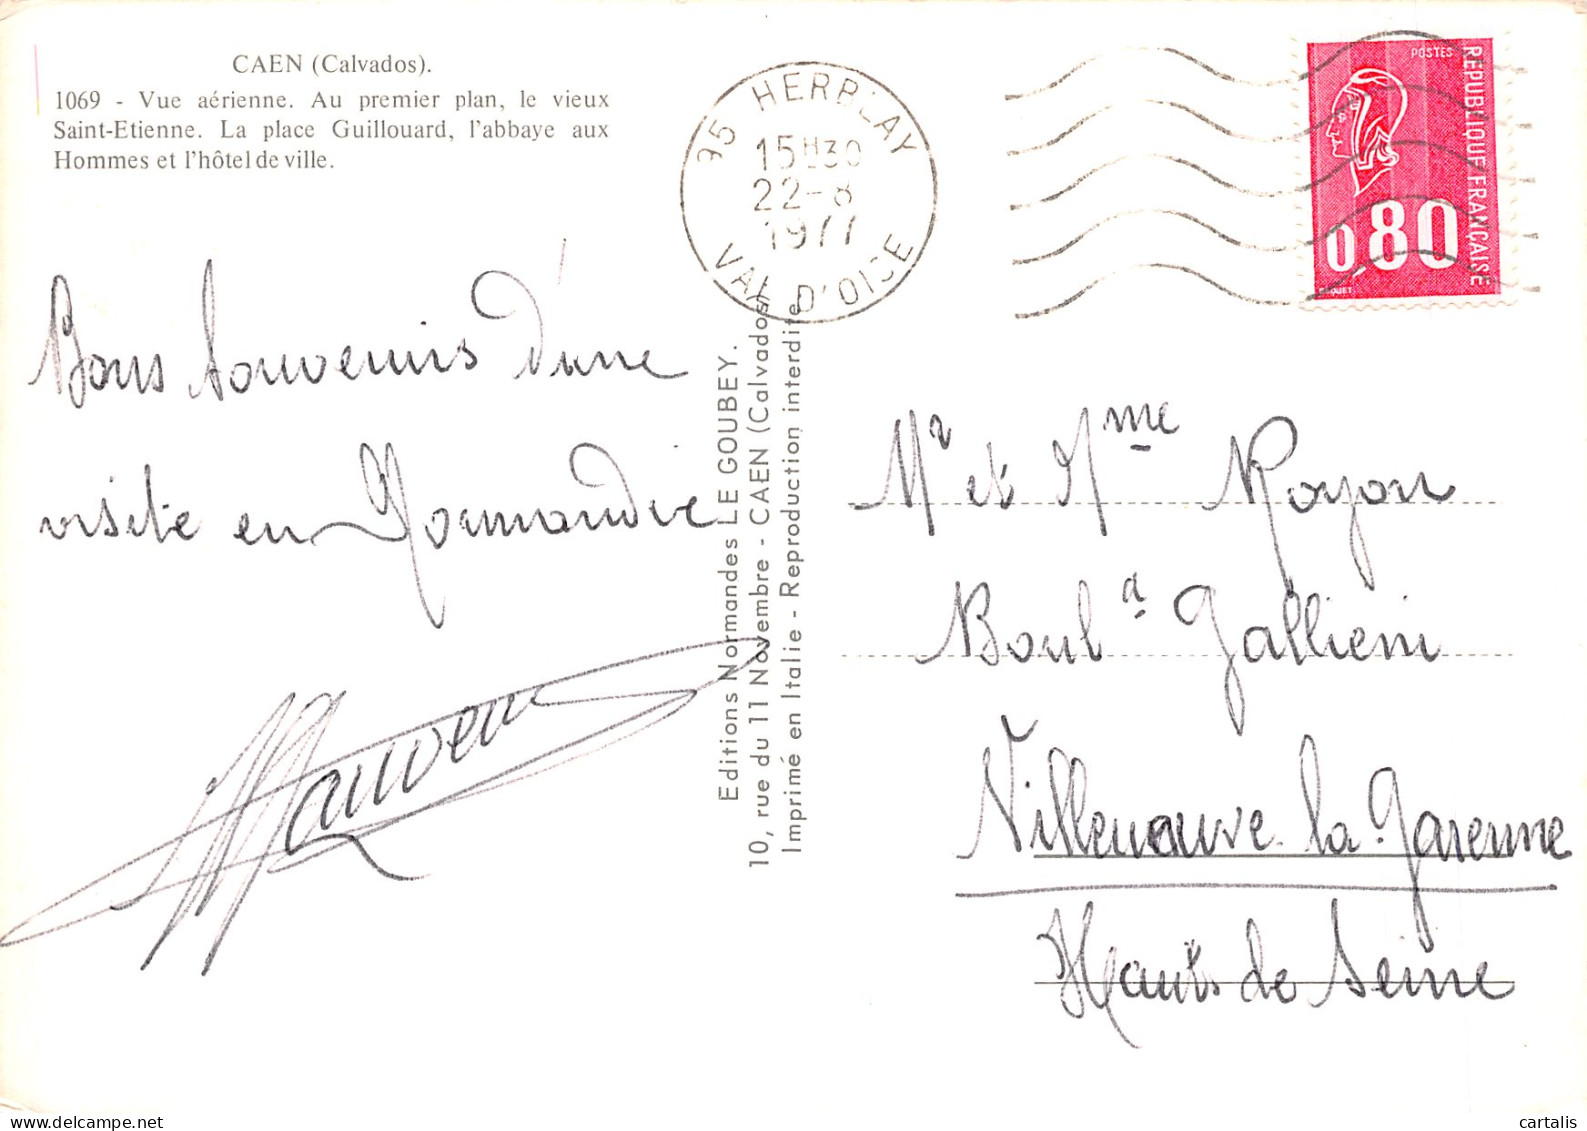 CAEN (Calvados).
1069 - Vue aérienne. Au premier plan, le vieux
Saint-Etienne. La place Guillouard, l'abbaye aux
Hommes et l'hôtel de ville.
95 HERBLAY
15H30
22-8
1977
VAL D'OISE
POSTES
REPUBLIQUE FRANÇAISE
0,80
BEQUET
Bons souvenirs d'une
visite en Normandie
Editions Normandes LE GOUBEY.
10, rue du 11 Novembre - CAEN (Calvados)
Imprimé en Italie - Reproduction interdite
Mr et Mme Royon
Boul d Gallieni
Villeneuve-la-Garenne
Hauts de Seine
cartalis